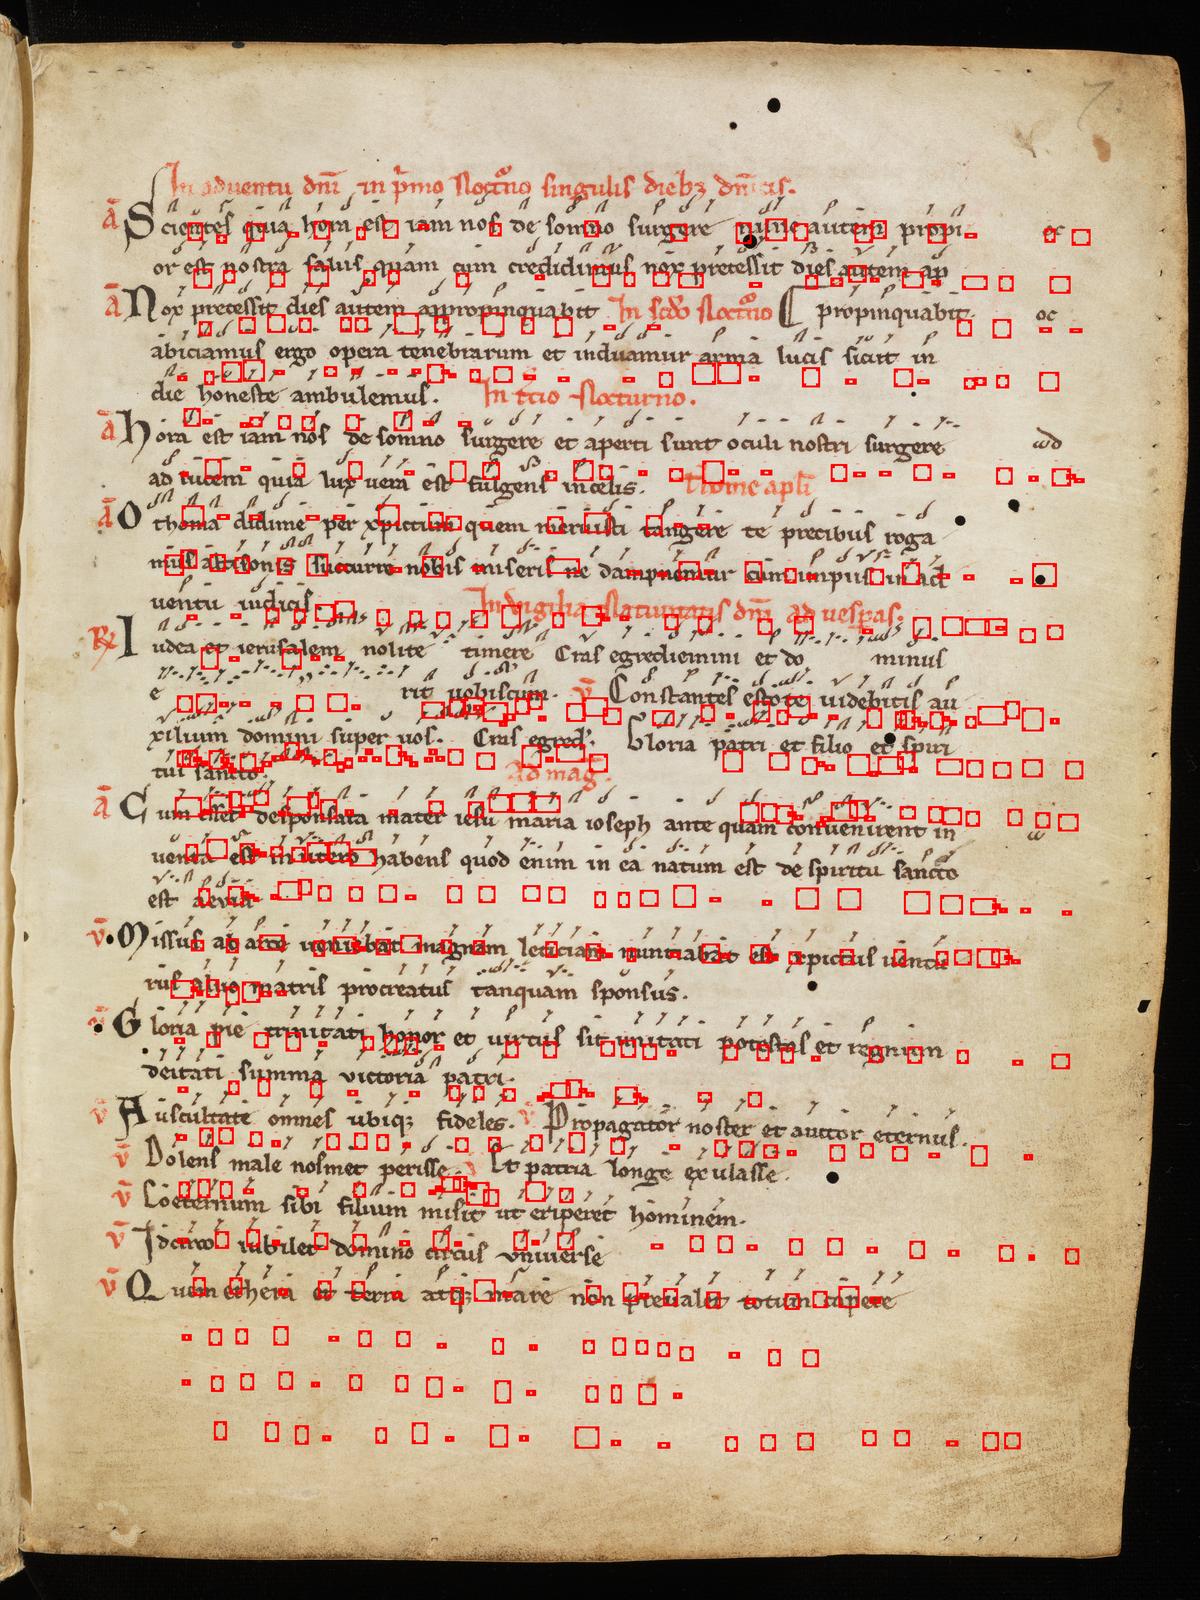 In aduentu dnī in p̄mo Noctͦno singulis dieb; dnīcis.
ā Scientes quia hora est iam nos de somno surgere nunc autem propi
or est nostra salus quam cum credidimus nox precessit dies autem ap
ā Nox precessit dies autem appropinquabit In scdͦo Noctͦno propinquabit
abiciamus ergo opera tenebrarum et induamur arma lucis sicut in
die honeste ambulemus. In tcio Nocturno.
ā hora est iam nos de somno surgere et aperti sunt oculi nostri surgere
ad lucem quia lux uera est fulgens in celis. Thome apli
ā O thoma didime per xpictum quem meruisti tangere te precibus roga
mus altisonis succurre nobis miseris ne dampnemur cum impiis in ad
uentu iudicis. In uigilia Natiuitatis dnī ad uesperas.
℟ Iudea et ierusalem nolite timere Cras egrediemini et do minus
e rit uobiscum. v̄ Constantes estote uidebitis au
xilium domini super uos. Cras egred. Gloria patri et filio et spiri
tui sancto. Ad mag
ā Cum esset desponsata mater iesu maria ioseph ante quam conuenirent in
uenta est in utero habens quod enim in ea natum est de spiritu sancto
est aeuia
v̄ Missus ab arce ueniebat magnam leticiam nuntiabat est xpictus uentu
rus aluo matris procreatus tanquam sponsus.
Gloria pie trinitati honor et uirtus sit unitati potestas et regnum
deitati summa victoria patri.
v̄ Auscultate omnes ubiq; fideles. v̄ Propagator noster et auctor eternus.
v̄ Dolens male nosmet perisse. Et patria longe exulasse.
v̄ Coeternum sibi filium misit ut eriperet hominem.
v̄ Idcirco iubilet domino circus vniuerse
v̄ Quem ethera et terra atq; mare non preualet totum capere